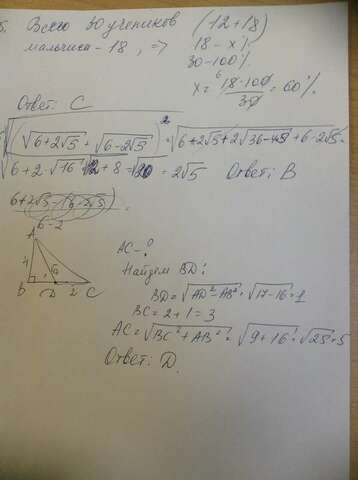 5. Всего 30 учеников (12+18)
мальчиков - 18, => 18 - x%
30 - 100%
x = 18·100/30 = 60%
Ответ: C
√(√(6+2√5) + √(6-2√5))² = √(6+2√5+2√(36-4·5)+6-2√5) =
√(12+2·√16) = √(12+8) = √20 = 2√5 Ответ: B
6+2√5-(6-2√5)
6-2
A
4
B D 2 C
AC - ?
Найдём BD:
BD = √(AD²-AB²) = √(17-16) = 1
BC = 2+1 = 3
AC = √(BC²+AB²) = √(9+16) = √25 = 5
Ответ: D.